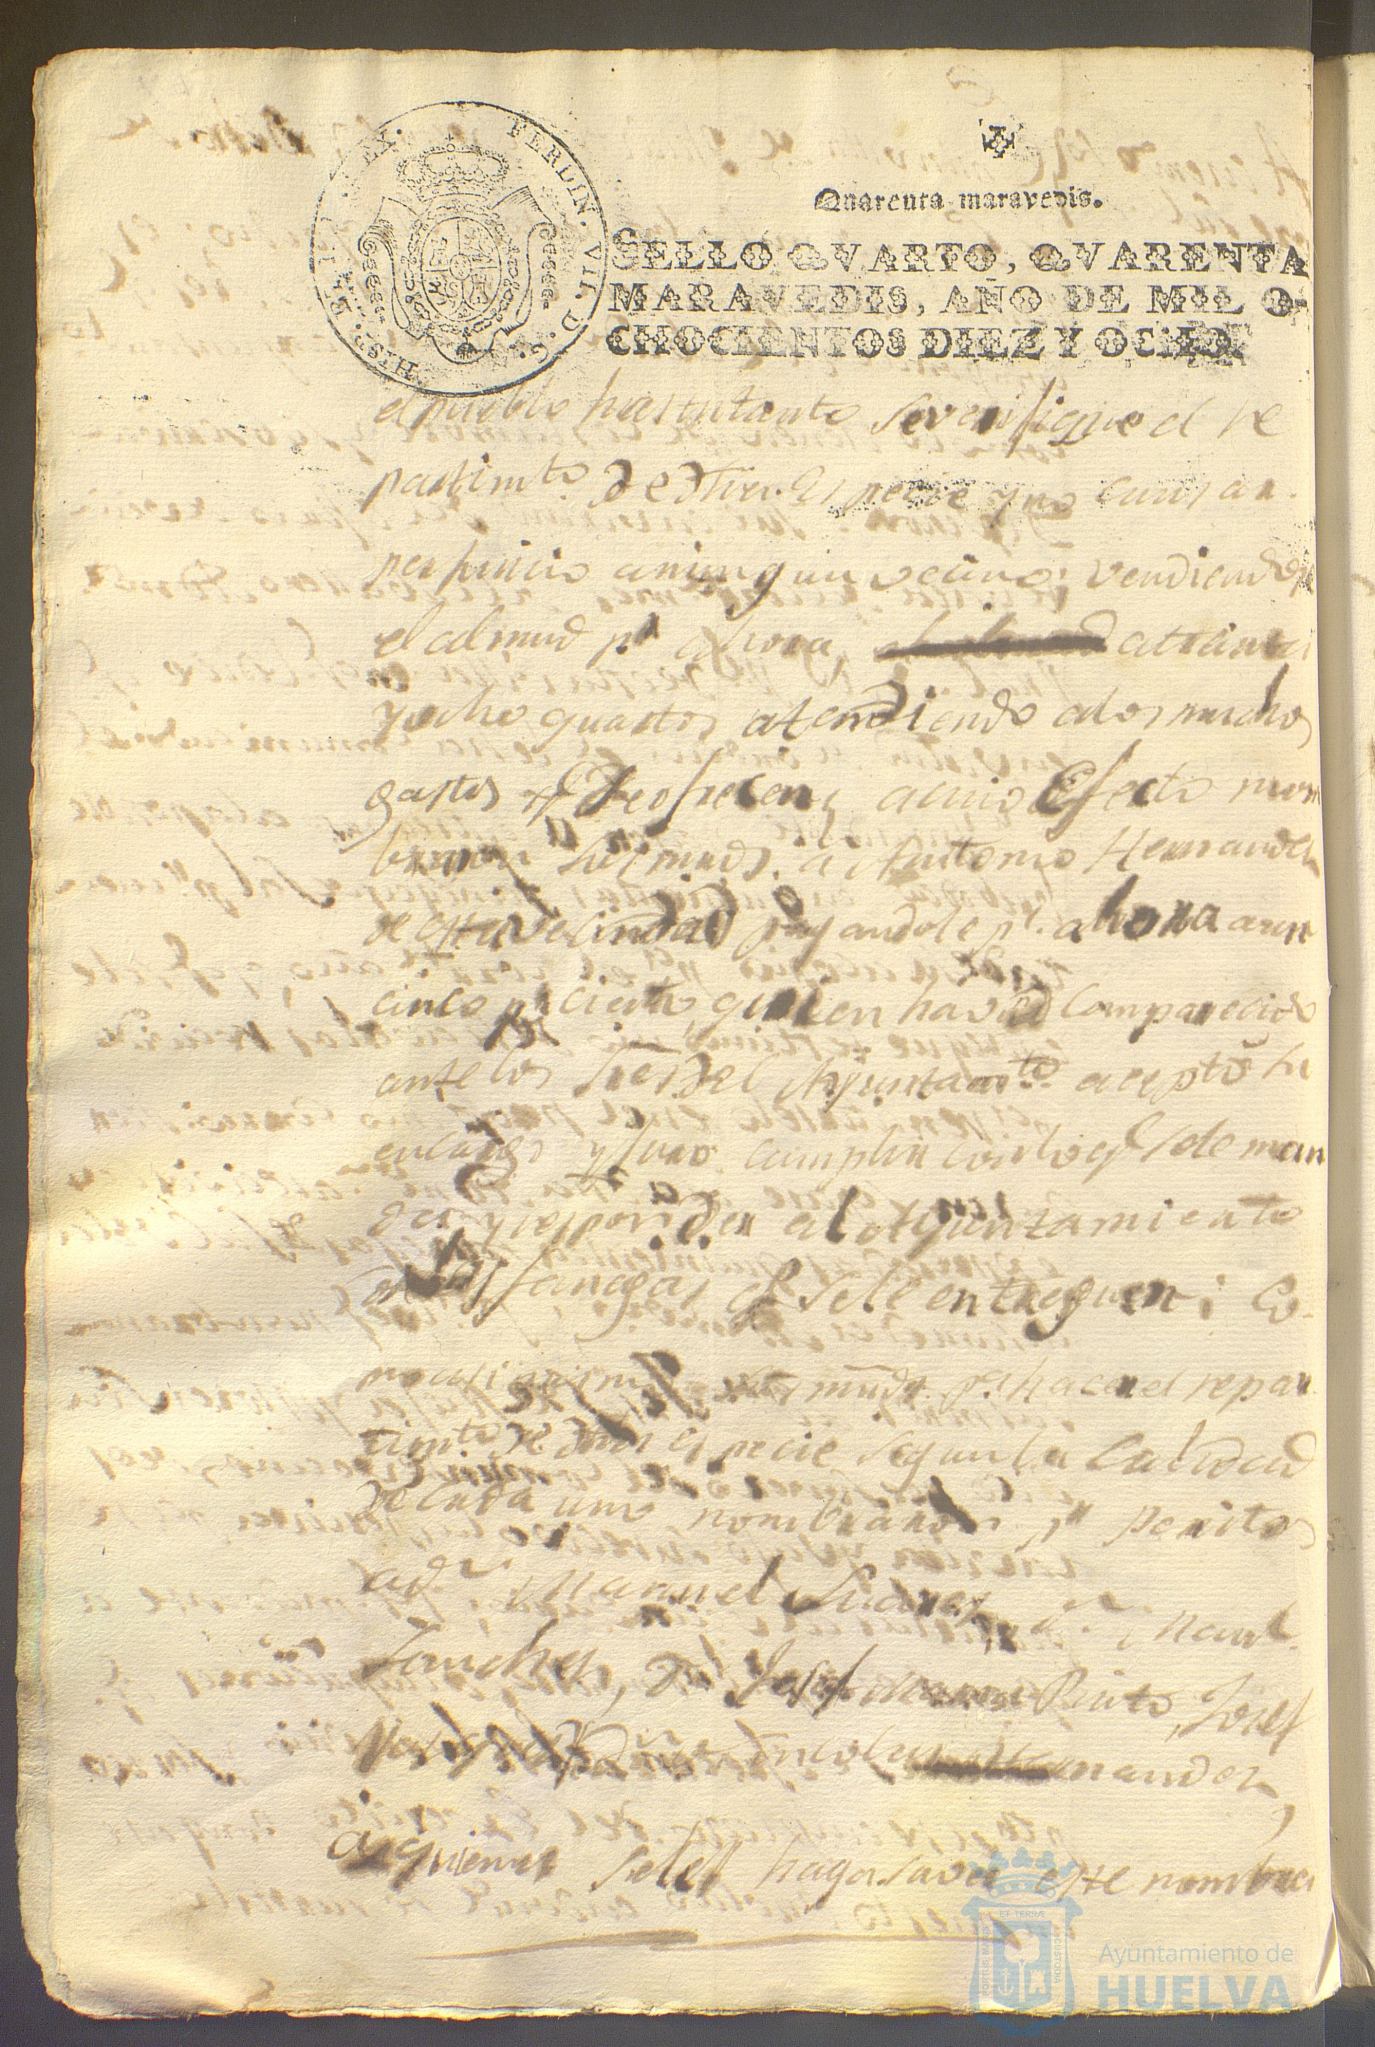 HISP. ET IND. REX. FERDIN. VII. D. G.
Quarenta maravedis.
SELLO QVARTO, QVARENTA
MARAVEDIS, AÑO DE MIL O-
CHOCIENTOS DIEZ Y OCHO.
el pueblo hasta tanto se verifique el re
partimto de dha. especie y no causar.
perjuicio aningun vecino; vendiendose
el almud pr ahora atreinta
y ocho quartos atendiendo alos muchos
gastos qe se ofrecen; acuio Efecto nom
braron sus mrds. a Antonio Hernandez
de esta vecindad pagandole pr. ahora a un
cinco pr ciento, quien haviendo Comparecido
ante los Sres del Ayuntamto. acepto su
encargo y juro cumplir con lo qe se le man
de y responder al Ayuntamiento
fanegas qe se le entreguen; Co
mrds. pa. hacer el repar
timto de dha especie segun la calidad
de cada uno nombraron pr Peritos
a dn Manuel Suarez, dn Manl.
Sanchez, dn Josef Pinto, Josef
Nicolas Hernandez,
a quienes se les haga saver este nombra
ET TERRÆ
Ayuntamiento de
HUELVA